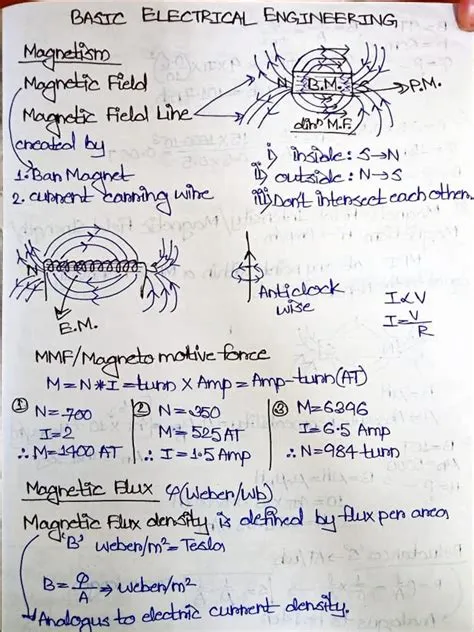 BASIC ELECTRICAL ENGINEERING
Magnetism
Magnetic Field
Magnetic Field Line
created by
1. Bar Magnet
2. current carrying wire
N B.M. P.M.
dirⁿ M.F.
i) inside: S→N
ii) outside: N→S
iii) Don't intersect each other.
N
E.M.
Anticlock
wise
I∝V
I=V/R
MMF/Magneto motive force
M=N*I=turn X Amp=Amp-turn(AT)
① N=700
I=2
∴ M=1400 AT
② N=350
M=525 AT
∴ I=1.5 Amp
③ M=6396
I=6.5 Amp
∴ N=984 turn
Magnetic Flux φ(Weber/wb)
Magnetic Flux density, is defined by flux per area
'B' weber/m²=Tesla
B=φ/A ⇒ weber/m²
Analogus to electric current density.